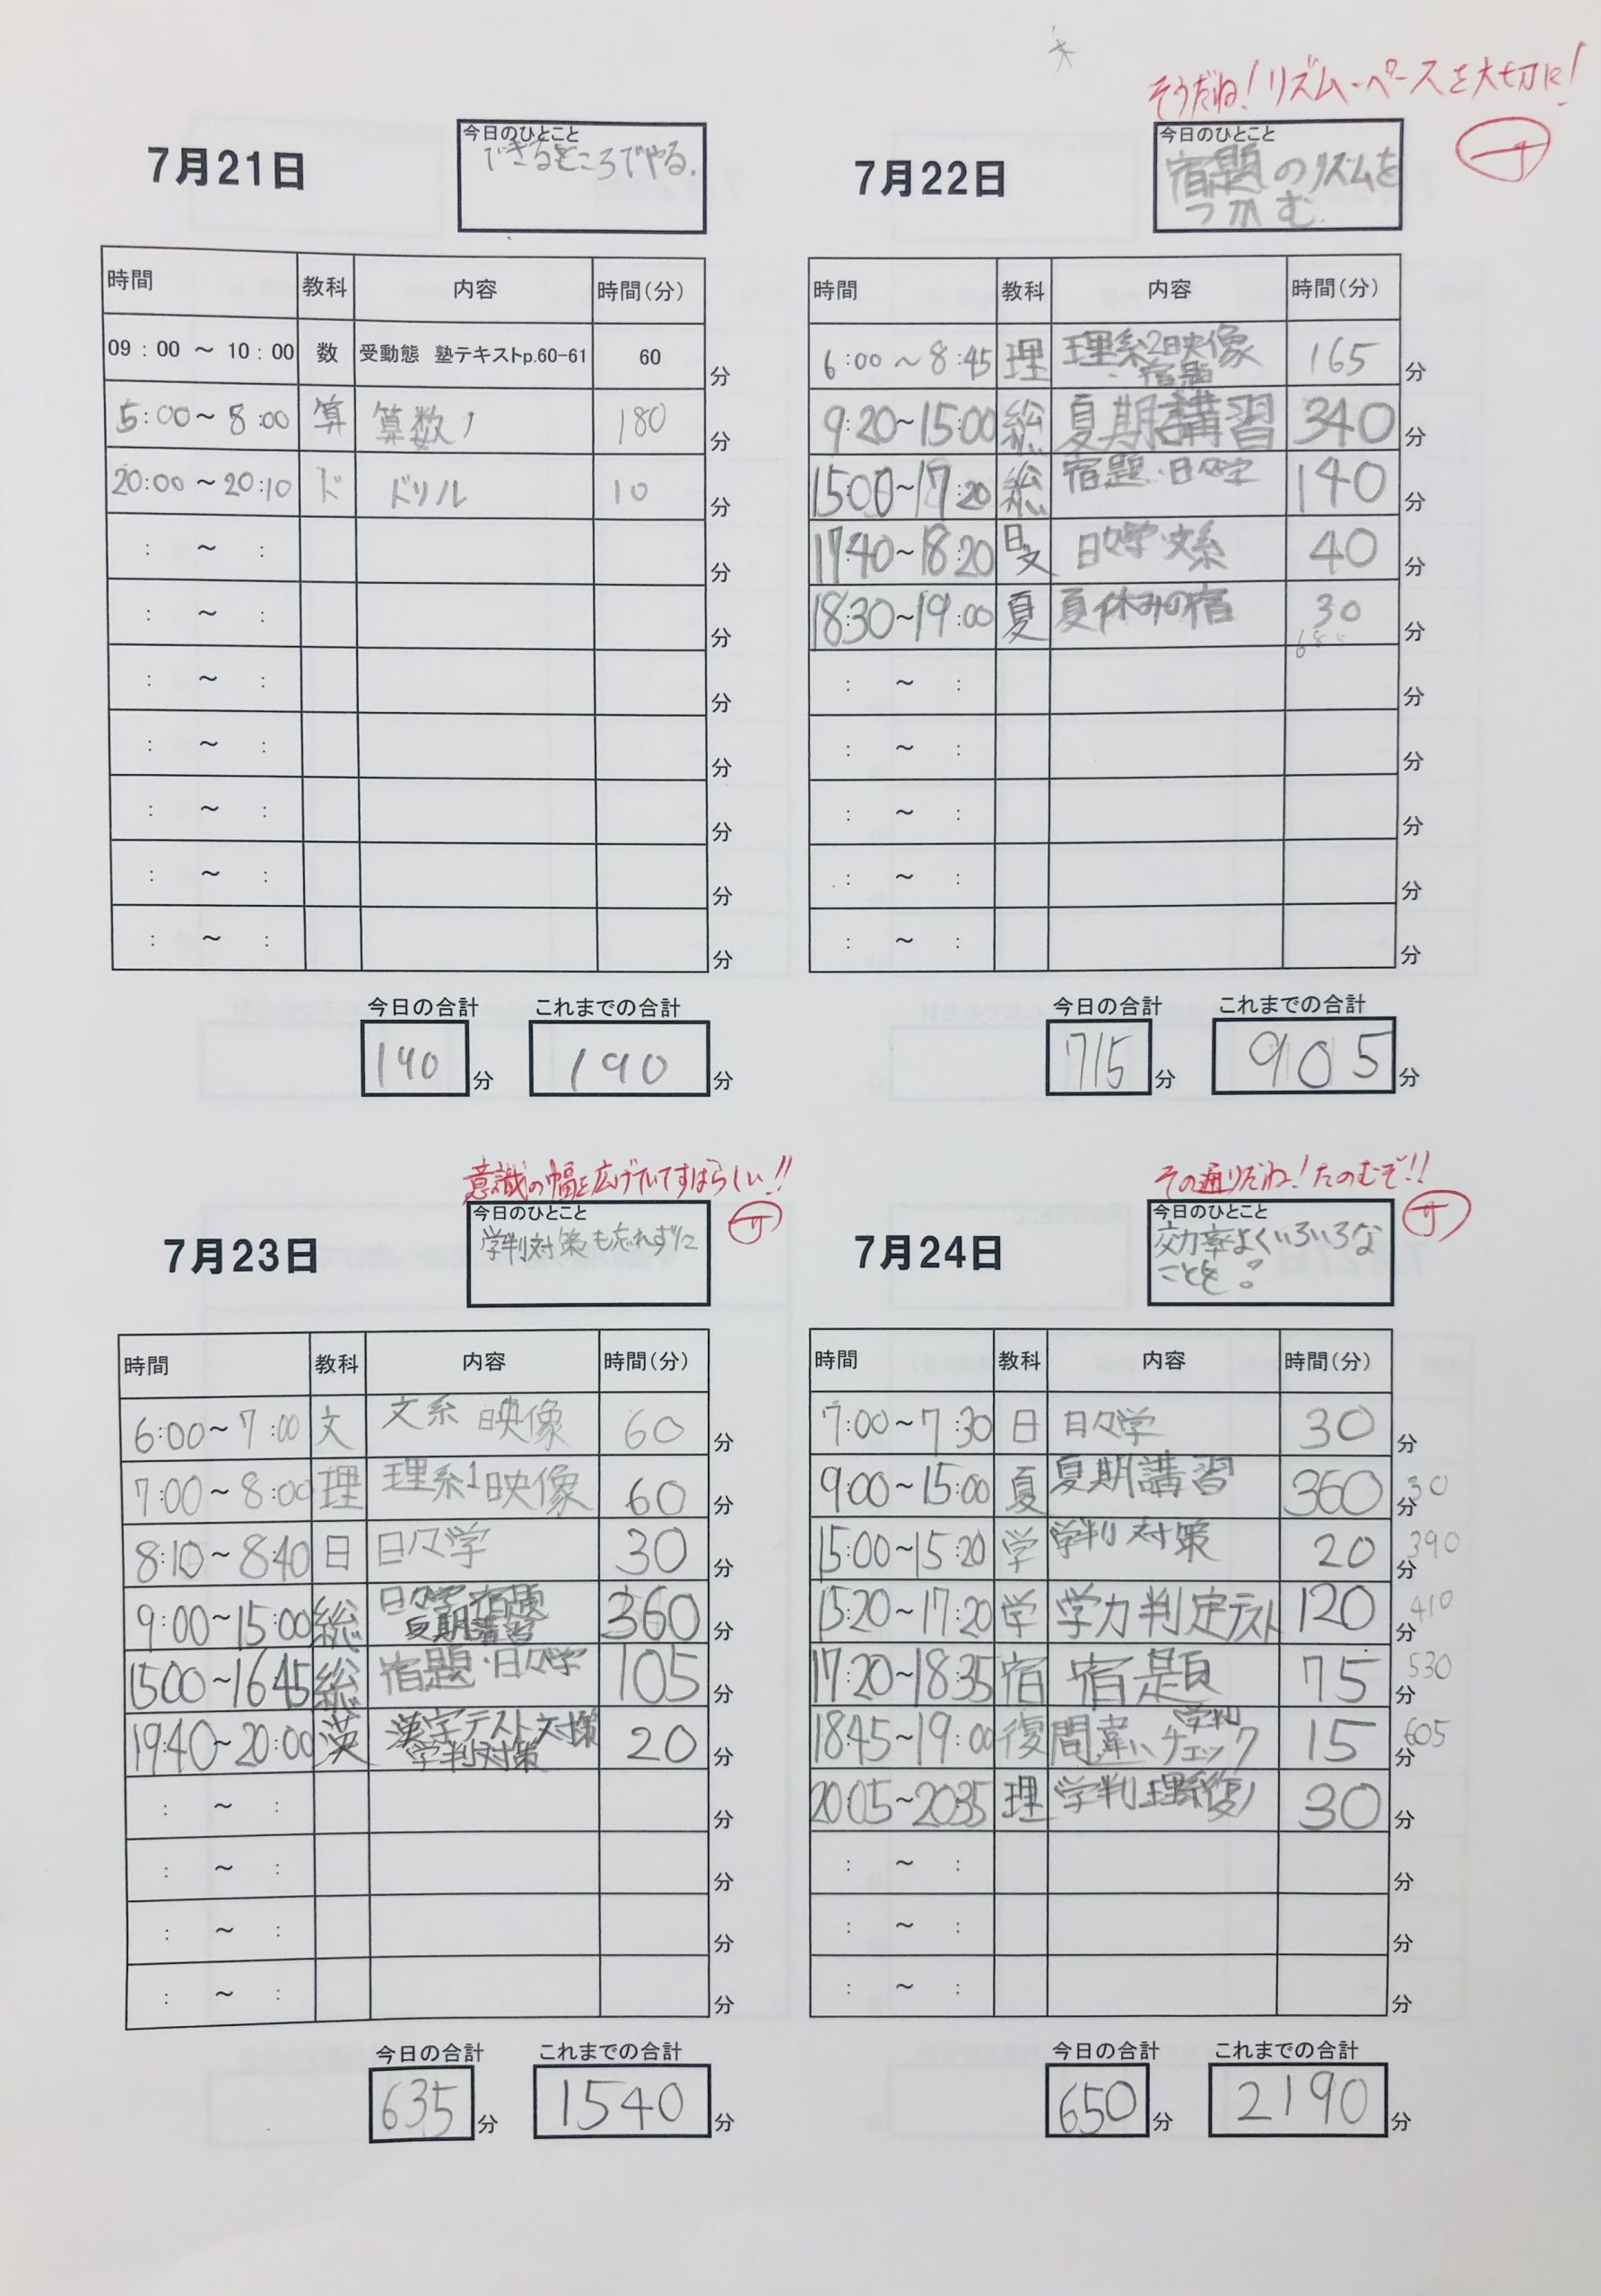 そうだね！リズム・ペースを大切に！
サ
7月21日
今日のひとこと
できるところでやる.
時間 教科 内容 時間(分)
09：00 ～ 10：00 数 受動態 塾テキストp.60-61 60 分
5:00～8:00 算 算数1 180 分
20:00～20:10 ド ドリル 10 分
: ～ : 分
: ～ : 分
: ～ : 分
: ～ : 分
: ～ : 分
: ～ : 分
: ～ : 分
今日の合計 これまでの合計
190 分 190 分
7月22日
今日のひとこと
宿題のリズムを
つかむ.
時間 教科 内容 時間(分)
6:00～8:45 理 理系2映像
宿題 165 分
9:20～15:00 総 夏期講習 340 分
15:00～17:20 総 宿題・日々学 140 分
17:40～18:20 日文 日々学・文系 40 分
18:30～19:00 夏 夏休みの宿 30 分
: ～ : 分
: ～ : 分
: ～ : 分
: ～ : 分
: ～ : 分
今日の合計 これまでの合計
715 分 905 分
意識の幅を広げていてすばらしい!!
サ
7月23日
今日のひとこと
学判対策も忘れずに
時間 教科 内容 時間(分)
6:00～7:00 文 文系 映像 60 分
7:00～8:00 理 理系1映像 60 分
8:10～8:40 日 日々学 30 分
9:00～15:00 総 日々学・宿題
夏期講習 360 分
15:00～16:45 総 宿題・日々学 105 分
19:40～20:00 漢 漢字テスト対策
学判対策 20 分
: ～ : 分
: ～ : 分
: ～ : 分
: ～ : 分
今日の合計 これまでの合計
635 分 1540 分
その通りだね！たのむぞ!!
サ
7月24日
今日のひとこと
効率よくいろいろな
ことを。
時間 教科 内容 時間(分)
7:00～7:30 日 日々学 30 分
9:00～15:00 夏 夏期講習 360 分 30
15:00～15:20 学 学判対策 20 分 390
15:20～17:20 学 学力判定テスト 120 分 410
17:20～18:35 宿 宿題 75 分 530
18:45～19:00 復 学判
間違いチェック 15 分 605
20:05～20:35 理 学判理系復 30 分
: ～ : 分
: ～ : 分
: ～ : 分
今日の合計 これまでの合計
650 分 2190 分